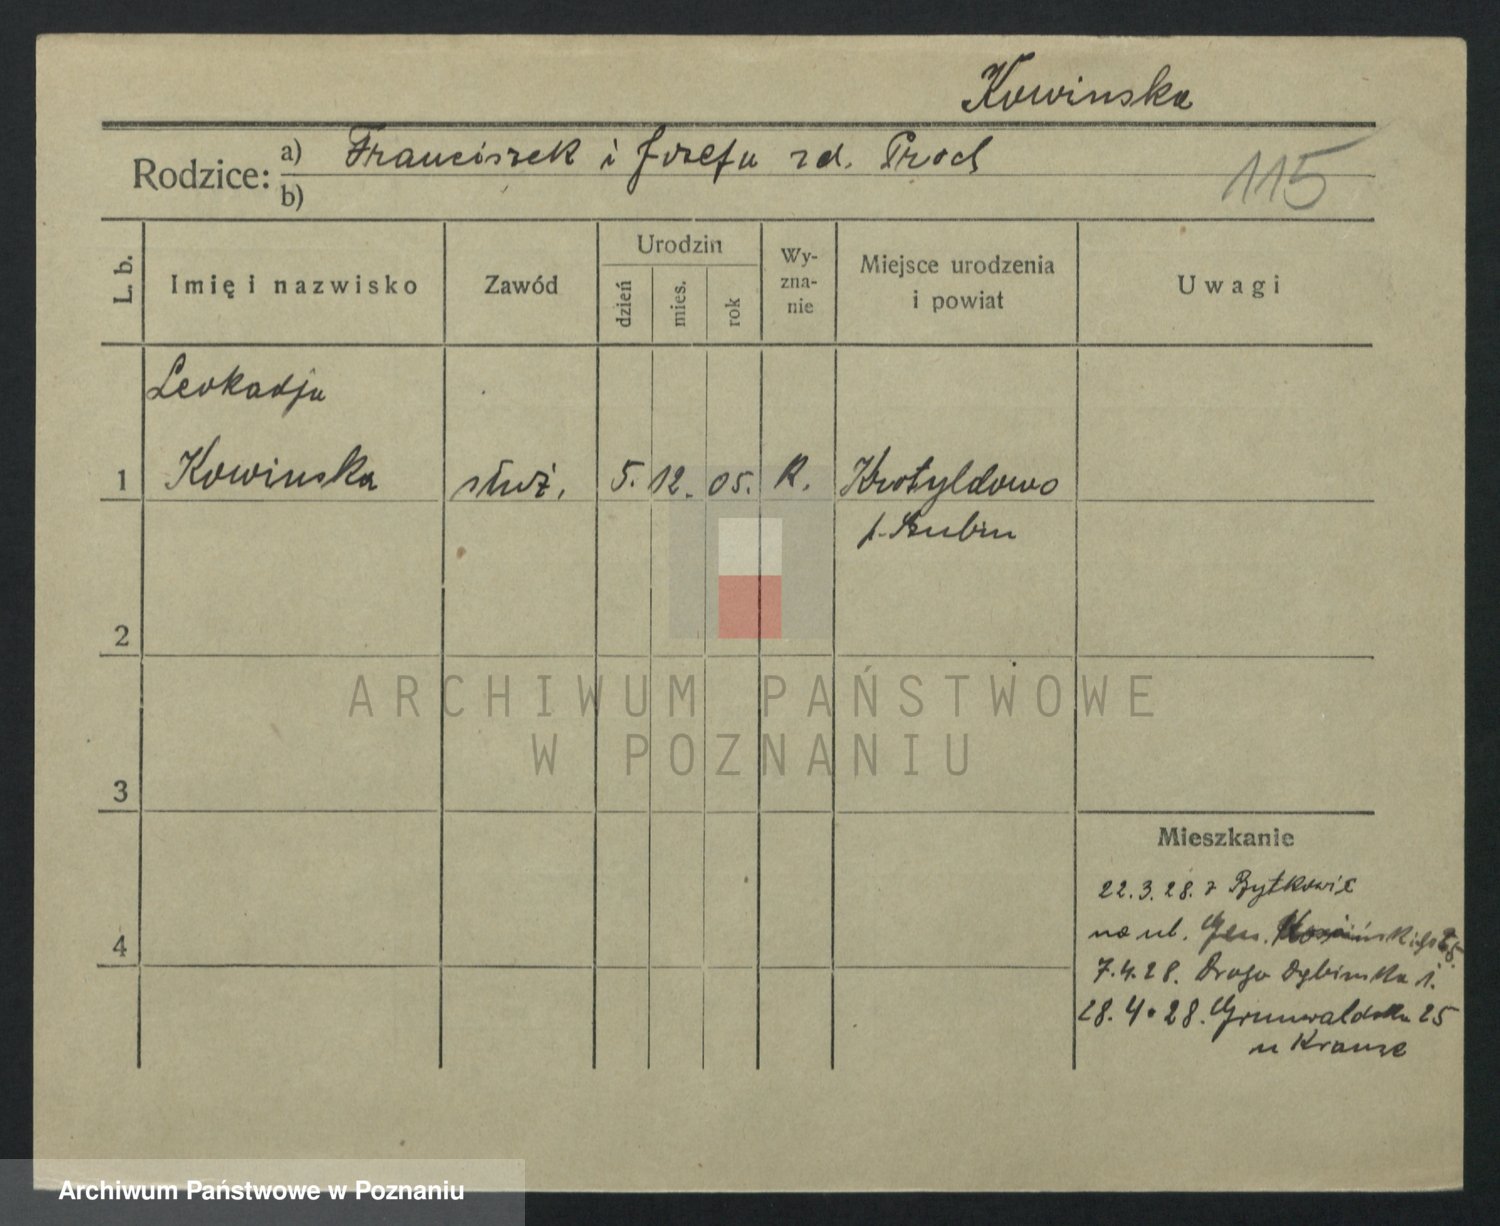 Kowinska
Rodzice: a) Franciszek i Józefa zd. Proch
b)
115
L. b.
Imię i nazwisko
Zawód
Urodzin
dzień
mies.
rok
Wy-
zna-
nie
Miejsce urodzenia
i powiat
Uwagi
Leokadja
1 Kowinska służ. 5. 12. 05. R. Krotyldowo
p. Szubin
2
ARCHIWUM PAŃSTWOWE
W POZNANIU
3
Mieszkanie
22.3.28. z Bytkowic
na ul. Gen.
4
7.4.28. Droga Dębinska 1.
28.4.28. Grunwaldska 25
u Krause
Archiwum Państwowe w Poznaniu